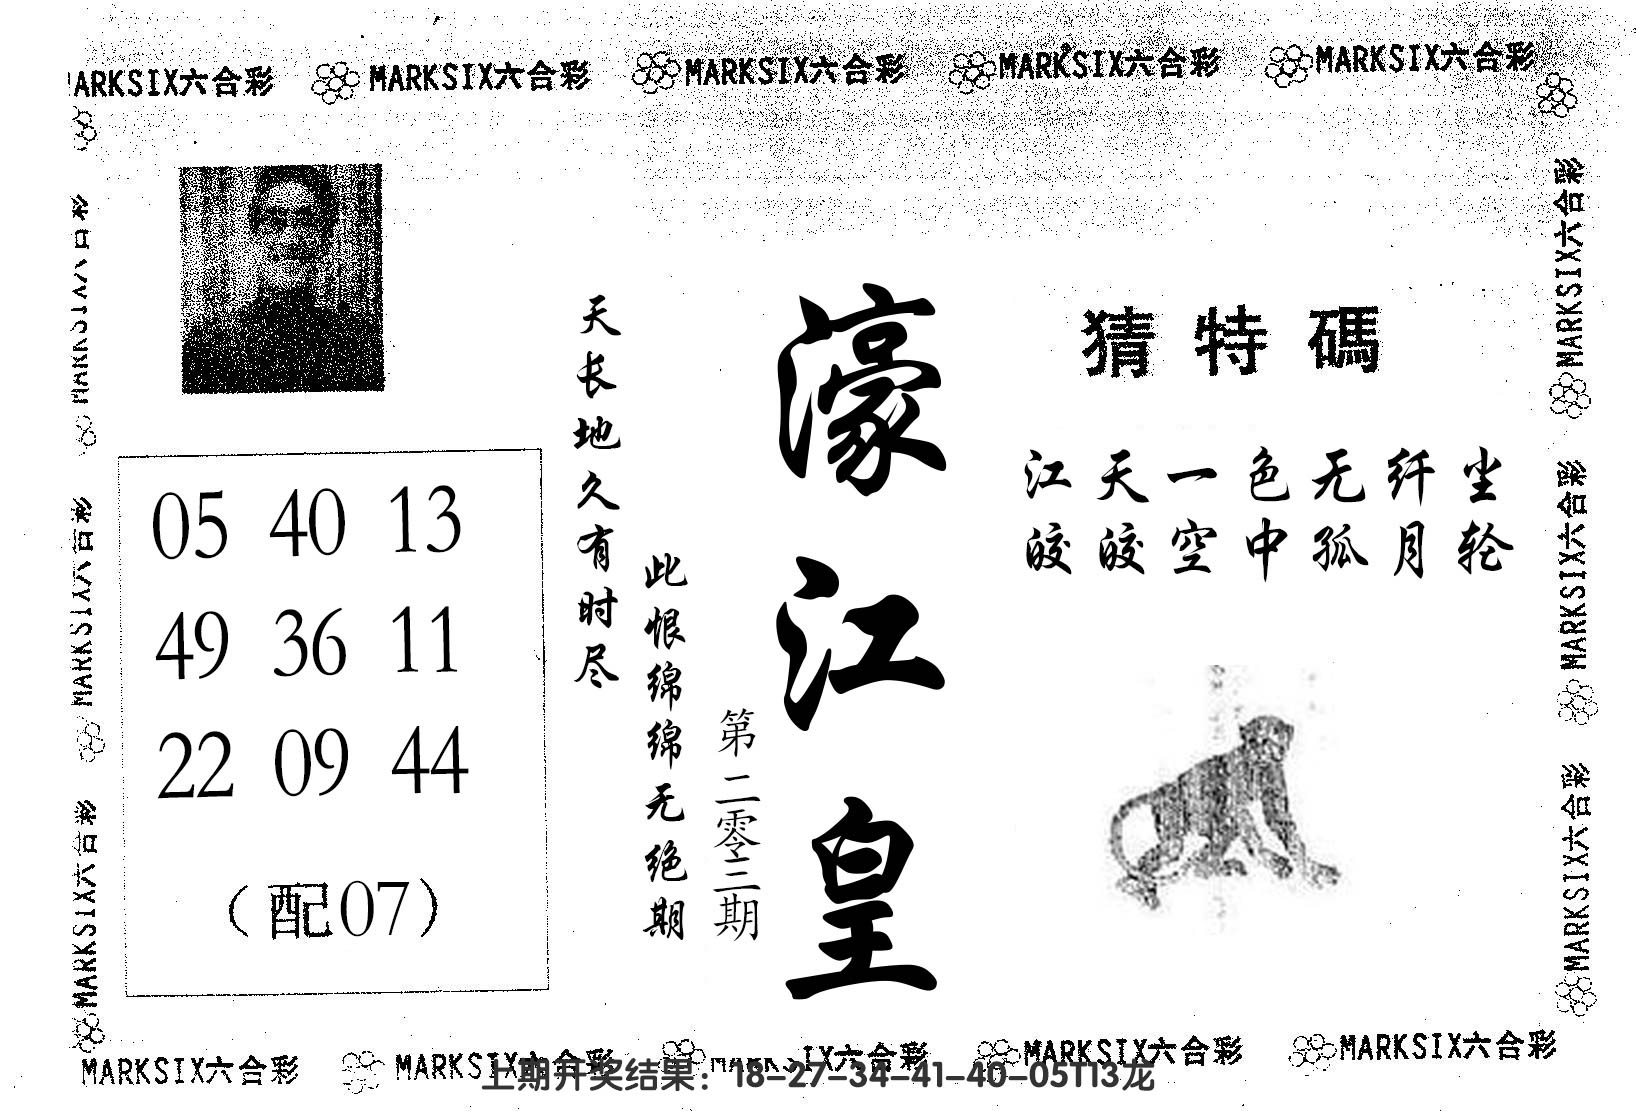 MARKSIX六合彩 MARKSIX六合彩 MARKSIX六合彩 MARKSIX六合彩
猜特碼
江天一色无纤尘
皎皎空中孤月轮
濠江皇
天长地久有时尽
此恨绵绵无绝期
第二零三期
05 40 13
49 36 11
22 09 44
（配07）
MARKSIX六合彩
MARKSIX六合彩
MARKSIX六合彩
MARKSIX六合彩
MARKSIX六合彩
MARKSIX六合彩 MARKSIX六合彩 MARKSIX六合彩 MARKSIX六合彩
上期开奖结果：18-27-34-41-40-05T13龙